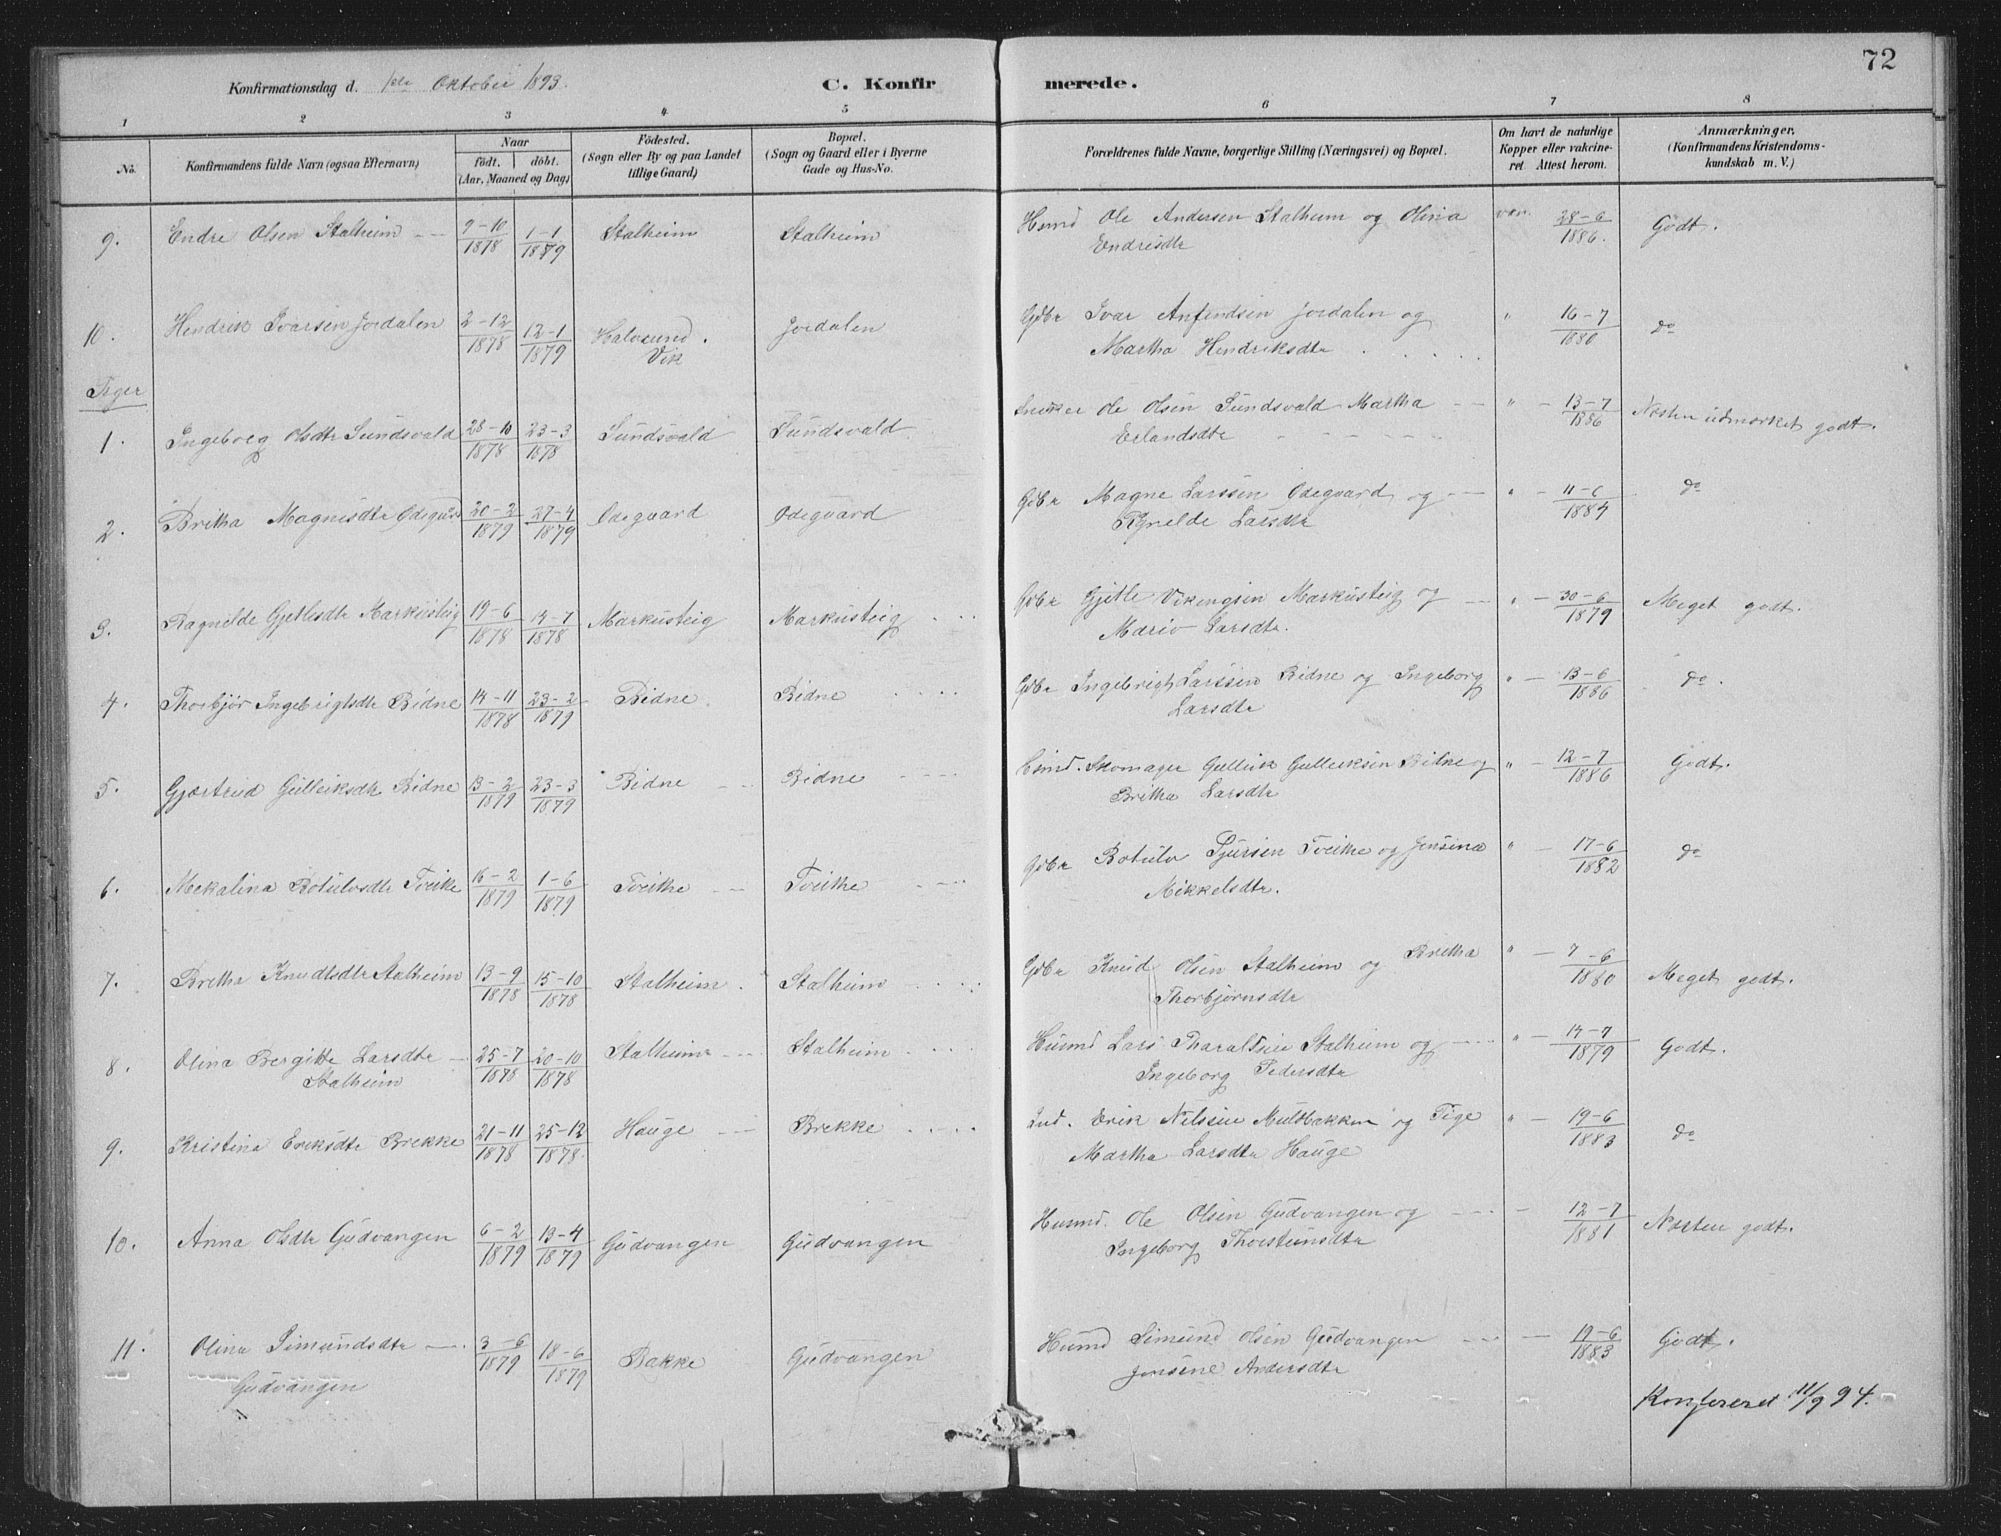 72
Konfirmationsdag d. 1ste Oktober 1893.
C. Konfirmerede.
1 2 3 4 5 6 7 8
No.
Konfirmandens fulde Navn (ogsaa Efternavn)
Naar
født. | døbt.
(Aar, Maaned og Dag)
Fødested.
(Sogn eller By og paa Landet
tillige Gaard)
Bopæl.
(Sogn og Gaard eller i Byerne
Gade og Hus-No.
Forældrenes fulde Navne, borgerlige Stilling (Næringsvei) og Bopæl.
Om havt de naturlige
Kopper eller vakcine-
ret Attest herom.
Anmærkninger.
(Konfirmandens Kristendoms-
kundskab m. V.)
9. Endre Olsen Stalheim 9-10 1878 1-1 1879 Stalheim Stalheim Husmd Ole Andersen Stalheim og Olina vac. 28-6 1886. Godt.
Endresdtr
10. Hendrik Ivarsen Jordalen 2-12 1878 12-1 1879 Halvsund. Jordalen Gdbr Ivar Anfindsen Jordalen og " 16-7 1880 do
Vik Martha Hendriksdtr
Piger
1. Ingeborg Olsdtr Sundsvald 28-10 1878 23-3 1878 Sundsvald Sundsvald Sneker Ole Olsen Sundsvald Martha " 13-7 1886 Næsten udmærket godt.
Erlandsdtr
2. Britha Magnesdtr Odegård 20-2 1879 27-4 1879 Odegaard Odegaard Gdbr Magne Larssen Odegaard og " 11-6 1884 do
Ragnilde Larsdtr
3. Ragnilde Gjetlesdtr Markusteig 19-6 1878 14-7 1878 Markusteig Markusteig Gdbr Gjetle Vikingsen Markusteig og " 30-6 1879 Meget godt.
Larsdtr.
4. Thorbjør Ingebrigtsdtr Bidne 14-11 1878 23-2 1879 Bidne Bidne Gdbr Ingebrigt Larssen Bidne og Ingeborg " 13-6 1886 do.
Larsdtr
5. Gjærtrud Gulleiksdtr Bidne 13-2 1879 23-3 1879 Bidne Bidne Skomager Gulleik Gulleiksen Bidne og " 12-7 1886 Godt.
Britha Larsdtr
6. Mekalina Botulvsdtr Tveite 16-2 1879 1-6 1879 Tveite Tveite Gdbr Botulv Sjursen Tveite og Jensina " 17-6 1882 do
Mikkelsdtr.
7. Britha Knudtsdtr Stalheim 13-9 1878 15-10 1878 Stalheim Stalheim Gdbr Knud Olsen Stalheim og Britha " 7-6 1880 Meget godt.
Thorbjørnsdtr
8. Olina Bergitte Larsdtr 25-7 1878 20-10 1878 Stalheim Stalheim Husmd Lars Tharaldsen Stalheim og " 14-7 1879 Godt.
Stalheim Ingeborg Pedersdtr
9. Kristina Eriksdtr Brekke 21-11 1878 25-12 1878. Hauge Brekke Ind. Erik Nilssen Muldbakken og Pige " 19-6 1883 do
Martha Larsdtr Hauge
10. Anna Olsdtr Gudvangen 6-2 1879 13-4 1879 Gudvangen Gudvangen Husmd. Ole Olsen Gudvangen og 12-7 1881 Næsten godt.
Ingeborg Thorsteinsdtr
11. Olina Simundsdtr 3-6 1879 18-6 1879 Bakke Gudvangen Husmd Simund Olsen Gudvangen 19-6 1883 Godt.
Gudvangen Jensine Andersdtr
Konfereret 11/9 94.